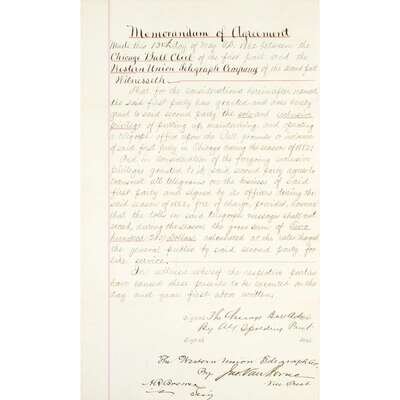 Memorandum of Agreement
Made this 13th day of May A.D. 1882 between the
Chicago Ball Club of the first part and the
Western Union Telegraph Company of the second part
Witnesseth
That for the considerations hereinafter named
the said first party has granted and does hereby
grant to said second party the sole and exclusive
privilege of putting up, maintaining, and operating
a telegraph office upon the Ball grounds
of said first party in Chicago during the season of 1882.
And in consideration of the forgoing exclusive
privileges granted to it said second party agrees to
transmit all telegrams on the business of said
first party and signed by its officers during the
said season of 1882, free of charge, provided, however
that the tolls on said telegraph messages shall not
exceed, during the season the gross sum of
hundred Dollars calculated at the rates charged
the general public by said second party for
like service.
In witness whereof the respective parties
have caused these presents to be executed on the
day and year first above written.
signed The Chicago Ball Club
By A G Spalding Prest
The Western Union Telegraph Co.
By Jno Van Horne
Vice Prest